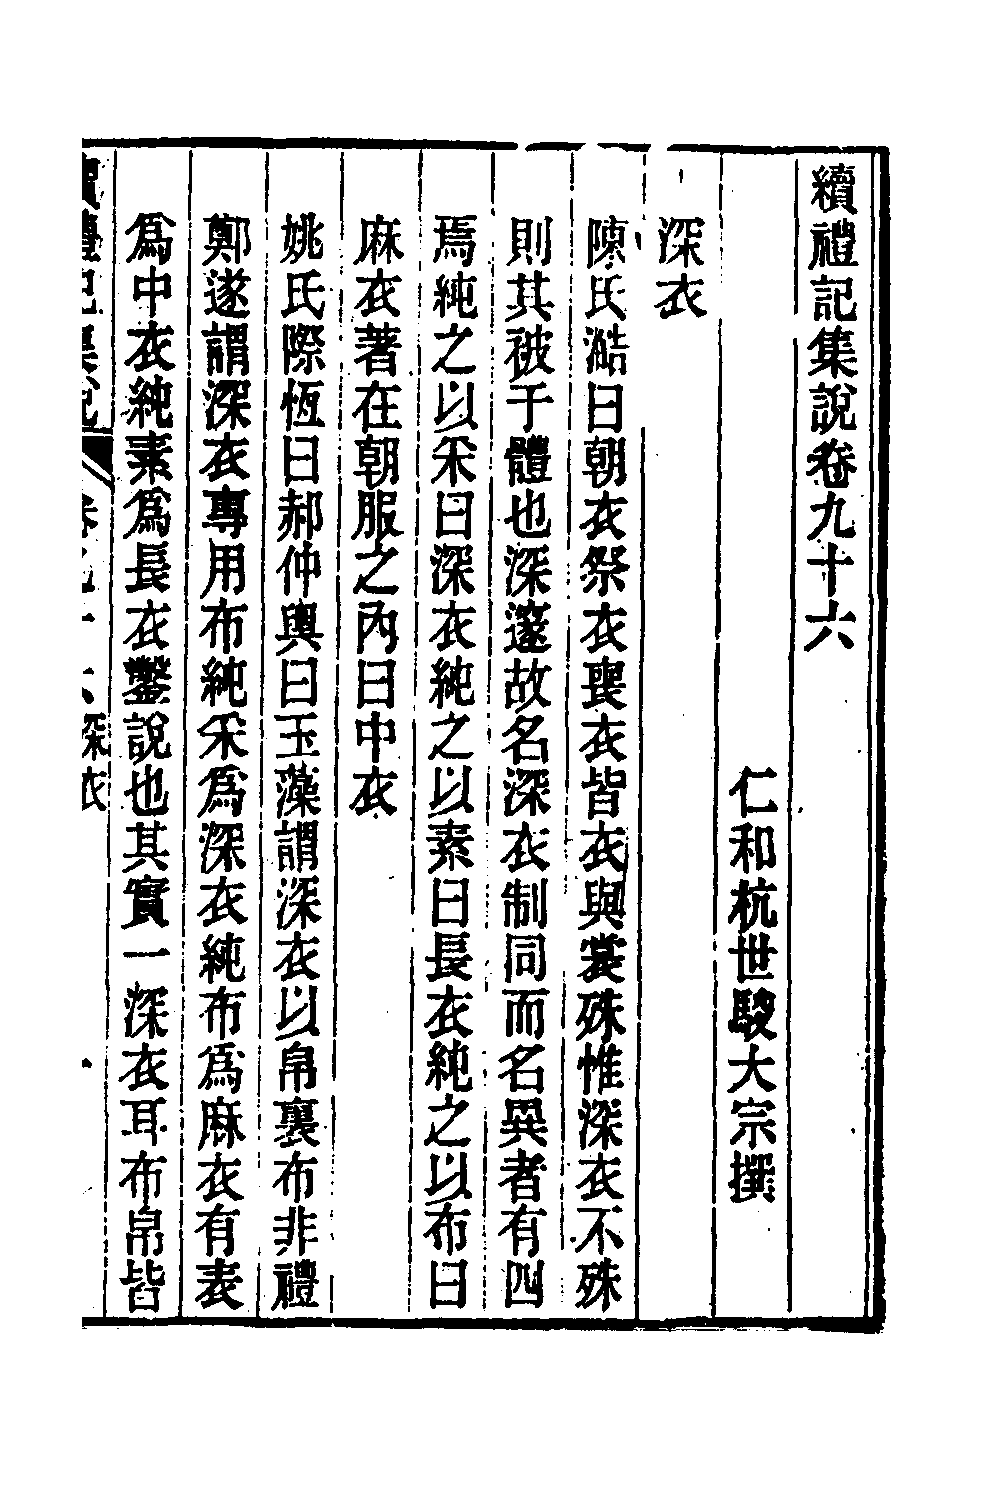 續禮記集說卷九十六
仁和杭世駿大宗撰
深衣
陳氏澔曰朝衣祭衣喪衣皆衣與裳殊惟深衣不殊
則其被于體也深邃故名深衣制同而名異者有四
焉純之以采曰深衣純之以素曰長衣純之以布曰
麻衣著在朝服之內曰中衣
姚氏際恆曰郝仲輿曰玉藻謂深衣以帛裏布非禮
鄭遂謂深衣專用布純采爲深衣純布爲麻衣有表
爲中衣純素爲長衣鑿說也其實一深衣耳布帛皆